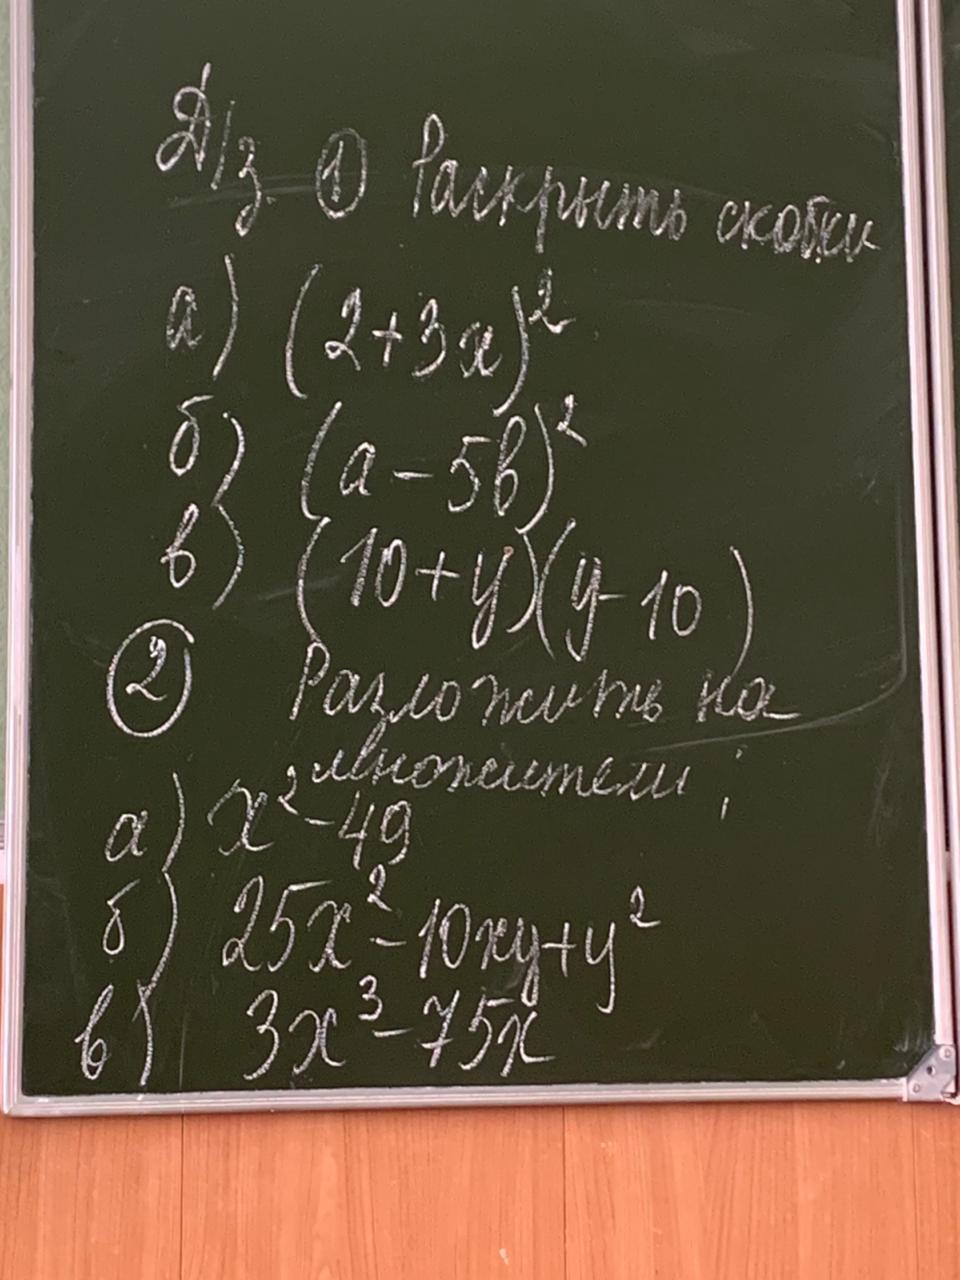 Д/з. ① Раскрыть скобки
а) (2+3x)²
б) (a-5b)²
в) (10+y)(y-10)
② Разложить на
множители;
а) x²-49
б) 25x²-10xy+y²
в) 3x³-75x